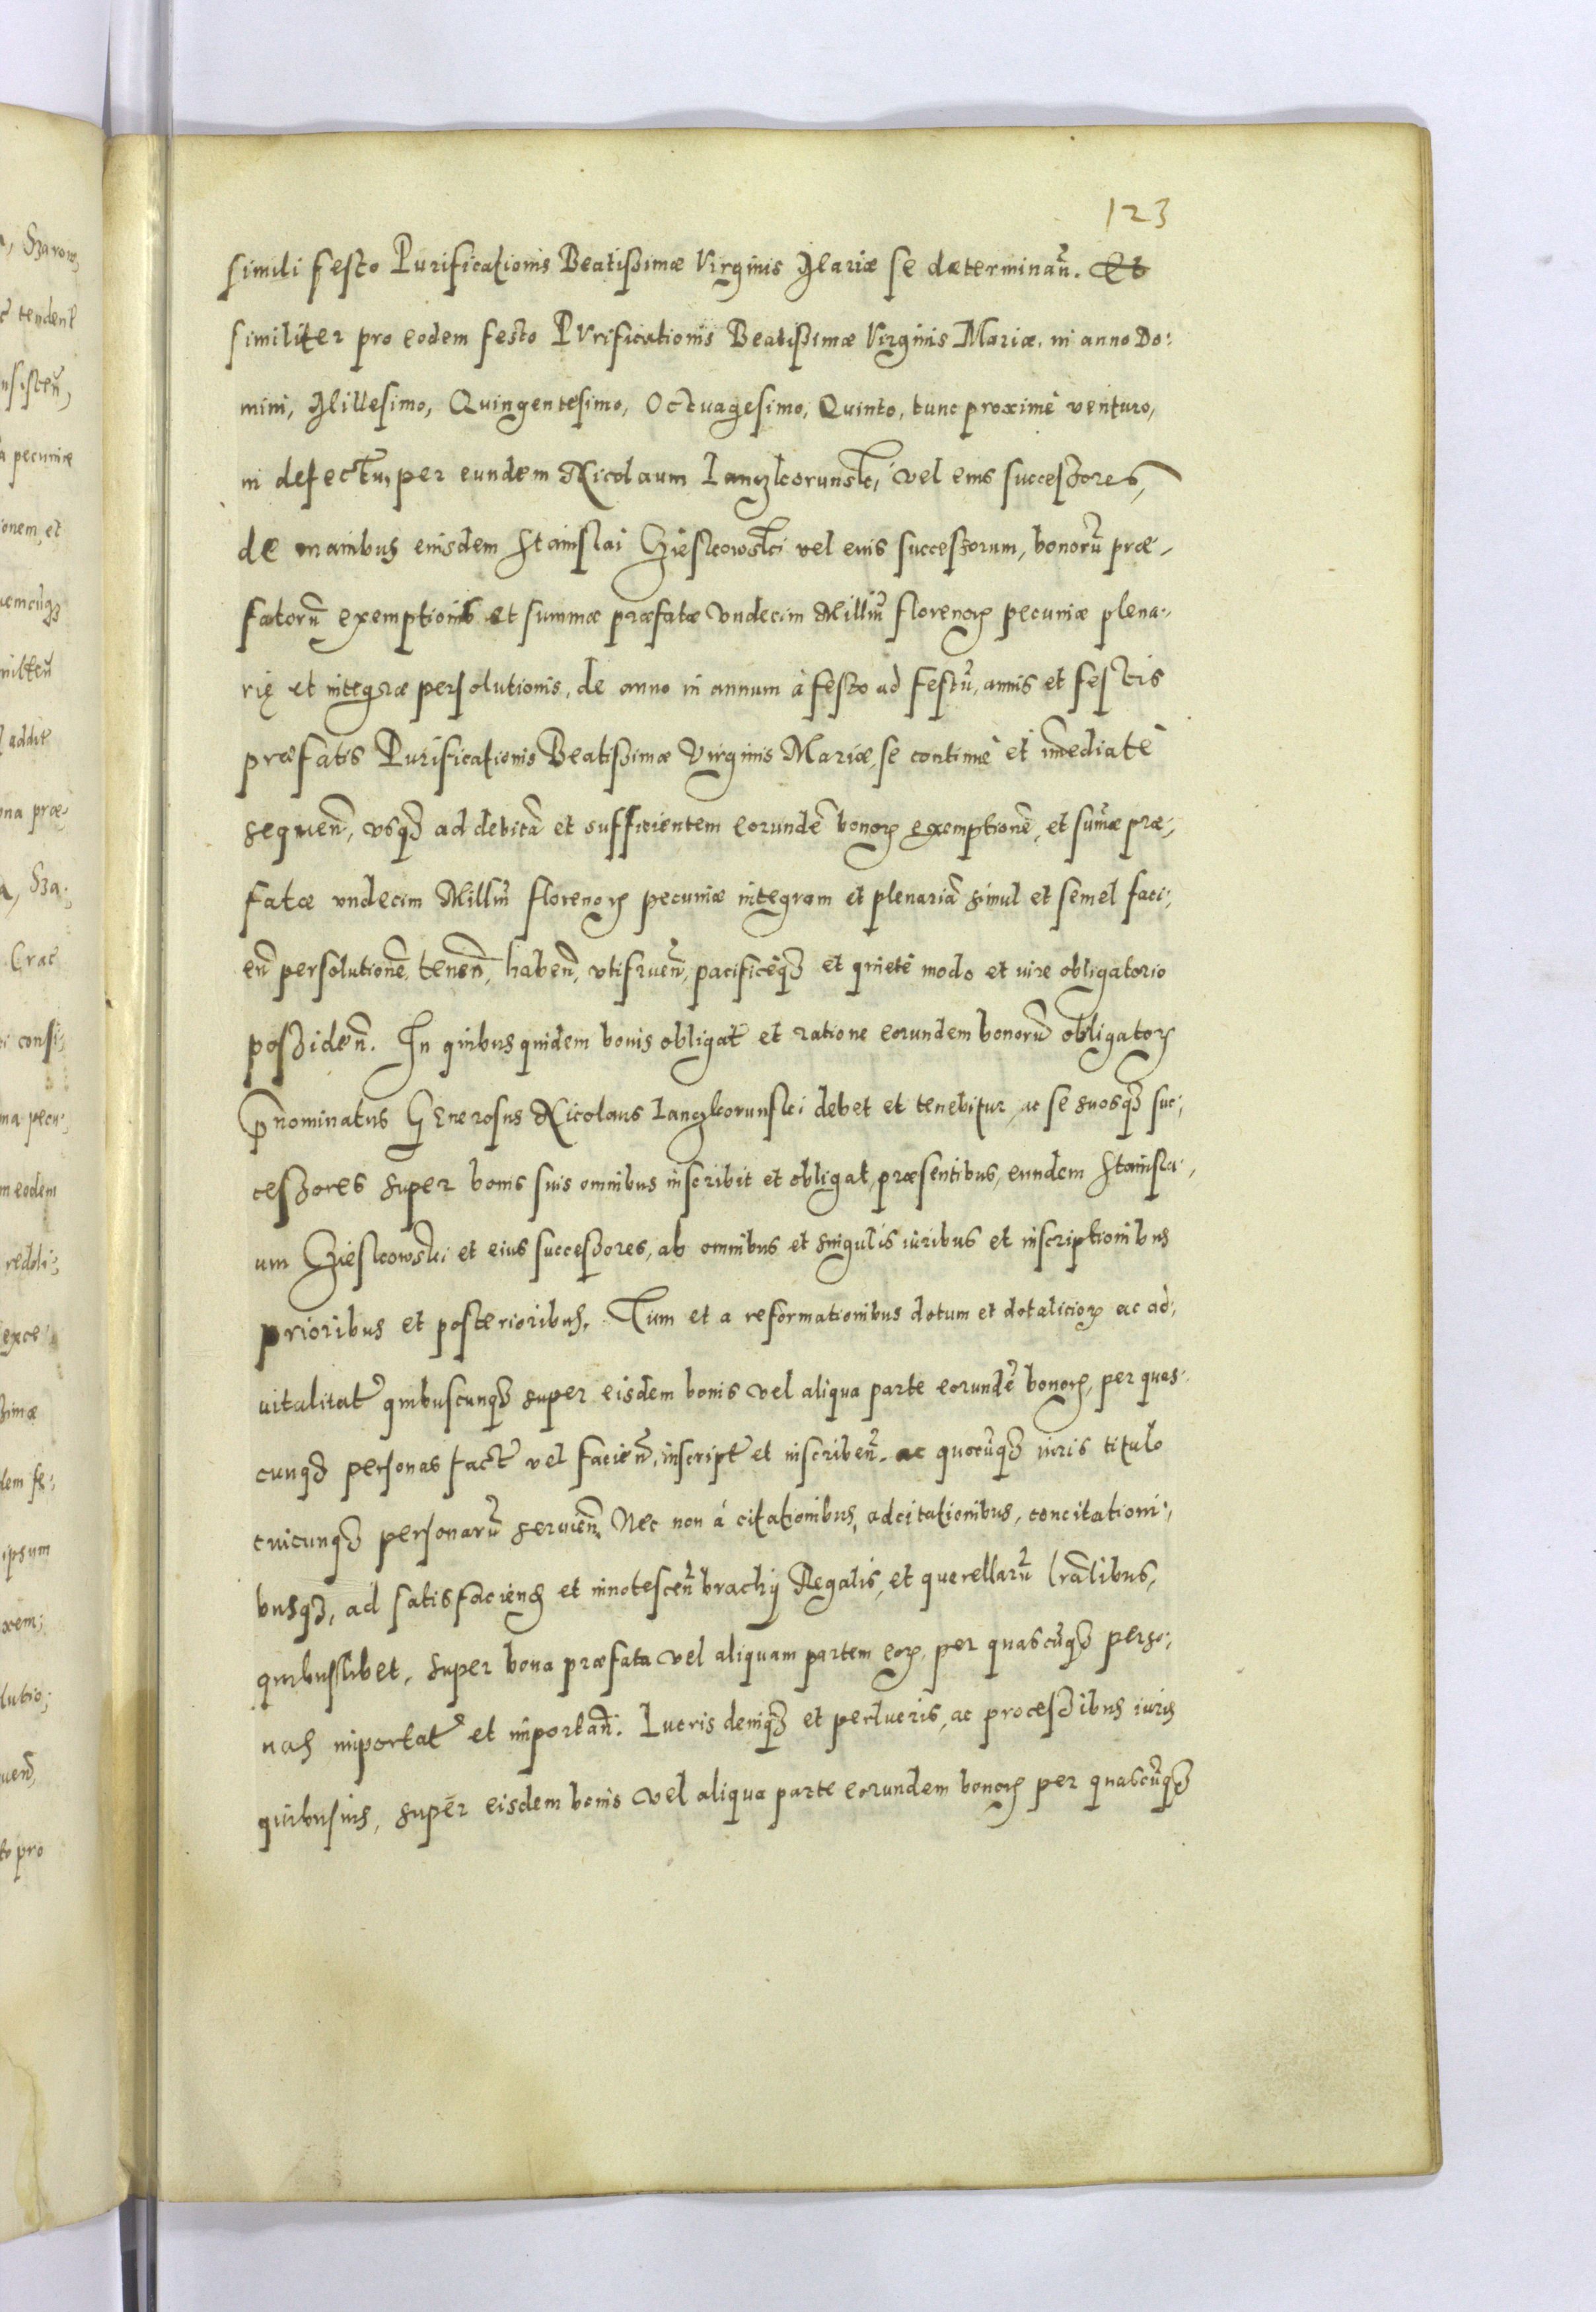 123
simili festo Purificationis Beatissimæ Virginis Mariæ se determinan̄. Et
similiter pro eodem festo PVrificationis Beatissimæ Virginis Mariæ. in anno Do:
mini, Millesimo, Quingentesimo, Octuagesimo, Quinto, tunc proximè venturo,
in defectu, per eundem Nicolaum Iangzkorunski, vel eius successores,
de manibus eiusdem Stanislai Gieskowski vel euis successorum, bonorū præ-
fatorū exemptionis et summæ præfatæ vndecim Milliū florenoꝝ pecuniæ plena-
rię et integræ persolutionis, de anno in annum à festo ad festū, annis et festis
præfatis Purificationis Beatissimæ Virginis Mariæ, se continuè et īmediatè
sequen̄, vsqꝫ ad debitā et sufficientem eorundē bonoꝝ exemptionē, et sūmæ præ-
fatæ vndecim Milliū florenoꝝ pecuniæ integram et plenariā simul et semel faci-
en̄ persolutionē, tenen̄, haben̄, vtifruen̄, pacificèqꝫ et quietè modo et vire obligatorio
possiden̄. In quibus quidem bonis obligat̄ et ratione eorundem bonorū obligatoꝝ
p̄nominatus Generosus Nicolaus Iangzkorunski debet et tenebitur, ac se suosqꝫ suc-
cessores super bonis suis omnibus inscribit et obligat, præsentibus, eundem Stanisla-
um Gieskowski et eius successores, ab omnibus et singulis iuribus et inscriptionibus
prioribus et posterioribus. Tum et a reformationibus dotum et dotalicioꝝ ac ad-
uitalitat̄ quibuscunqꝫ super eisdem bonis vel aliqua parte eorundē bonoꝝ, per quas-
cunqꝫ personas fact̄ vel facien̄, inscript̄ et inscriben̄. ac quocūqꝫ iuris titulo
cuicunqꝫ personarū seruien̄. Nec non à citationibus, adcitationibus, concitationi-
busqꝫ, ad satisfaciend̄ et innotescen̄ brachij Regalis, et querellarū lr̄alibus,
quibuslibet, super bona præfata vel aliquam partem eoꝝ, per quascūqꝫ perso-
nas importat̄ et importan̄. Lucris deniqꝫ et perlucris, ac processibus iuris
quibusuis, super eisdem bonis vel aliqua parte eorundem bonoꝝ per quascūqꝫ